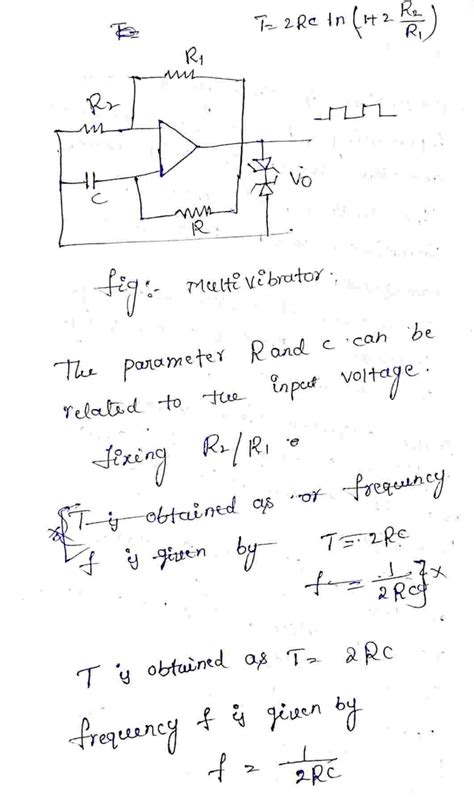 T= 2RC ln (1+2 R2/R1)
R1
R2
C
R
Vo
fig:- Multivibrator.
The parameter R and c can be
related to the input voltage.
fixing R2/R1
T is obtained as or frequency
f is given by T = 2RC
f = 1/2RC
T is obtained as T= 2RC
frequency f is given by
f = 1/2RC